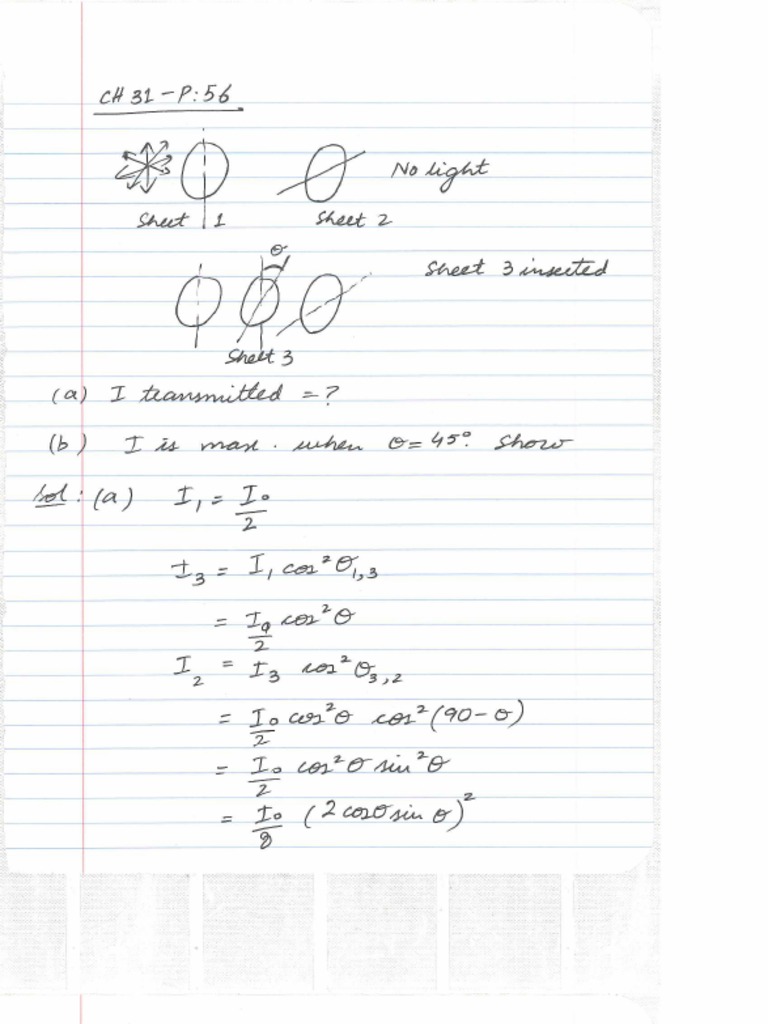 CH 31 - P: 56
No light
Sheet 1
Sheet 2
θ
Sheet 3 inserted
Sheet 3
(a) I transmitted = ?
(b) I is max. when θ = 45°. Show
Sol: (a) I₁ = I₀/2
I₃ = I₁ cos²θ₁,₃
= I₀/2 cos²θ
I₂ = I₃ cos²θ₃,₂
= I₀/2 cos²θ cos²(90-θ)
= I₀/2 cos²θ sin²θ
= I₀/8 (2 cosθ sin θ)²